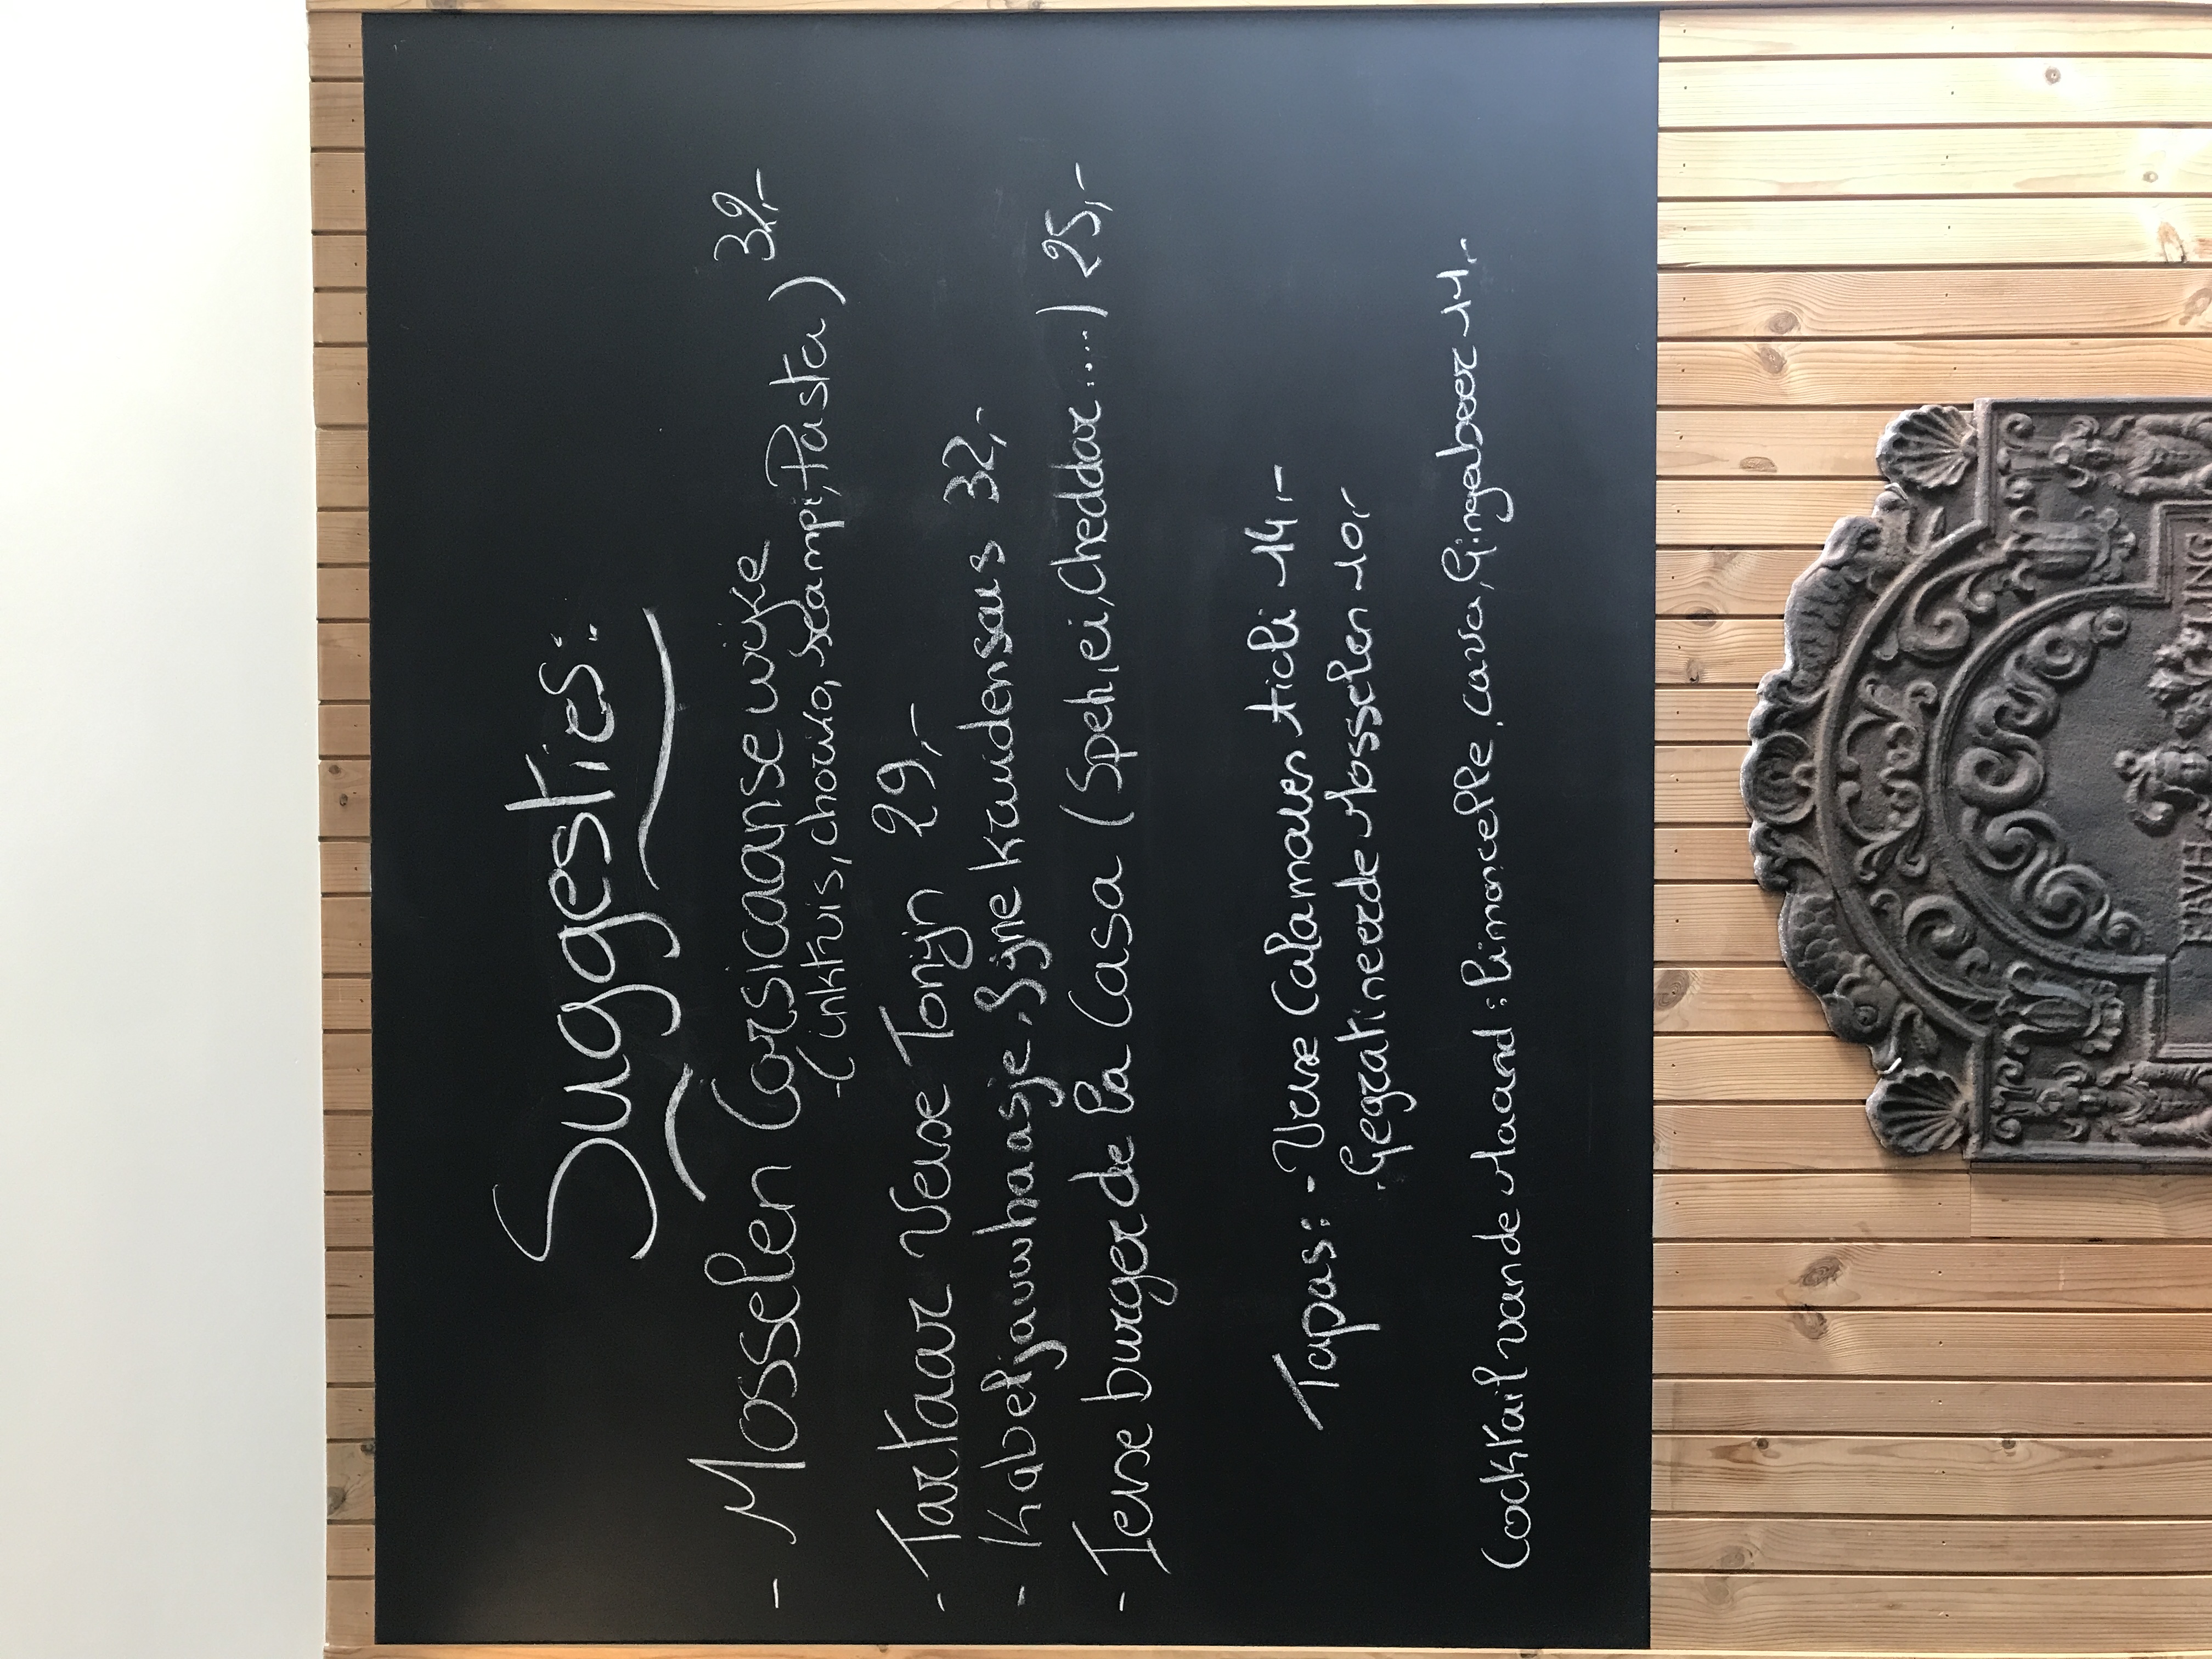 Suggesties:
- Mosselen Corsicaanse wijze
-(inktvis, chorizo, scampi, Pasta) 32,-
- Tartaar Verse Tonijn 29,-
- Kabeljauwhaasje, fijne kruidensaus 32,-
- Ierse burger de la Casa (Spek, ei, Cheddar....) 25,-
Tapas: - Verse Calamares 14,-
. Gegratineerde Mosselen 10,-
Cocktail van de Maand: Limoncello, cava, Gingebeer 14,-